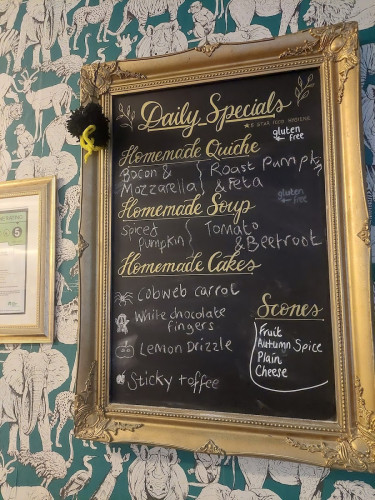 Daily Specials
★ 5 star food hygiene
gluten
free
Homemade Quiche
Bacon & Roast Pumpkin
Mozzarella & Feta
gluten
free
Homemade Soup
Spiced Tomato
pumpkin & Beetroot
Homemade Cakes
cobweb carrot
White chocolate
fingers
Lemon Drizzle
Sticky toffee
Scones
Fruit
Autumn Spice
Plain
Cheese
5